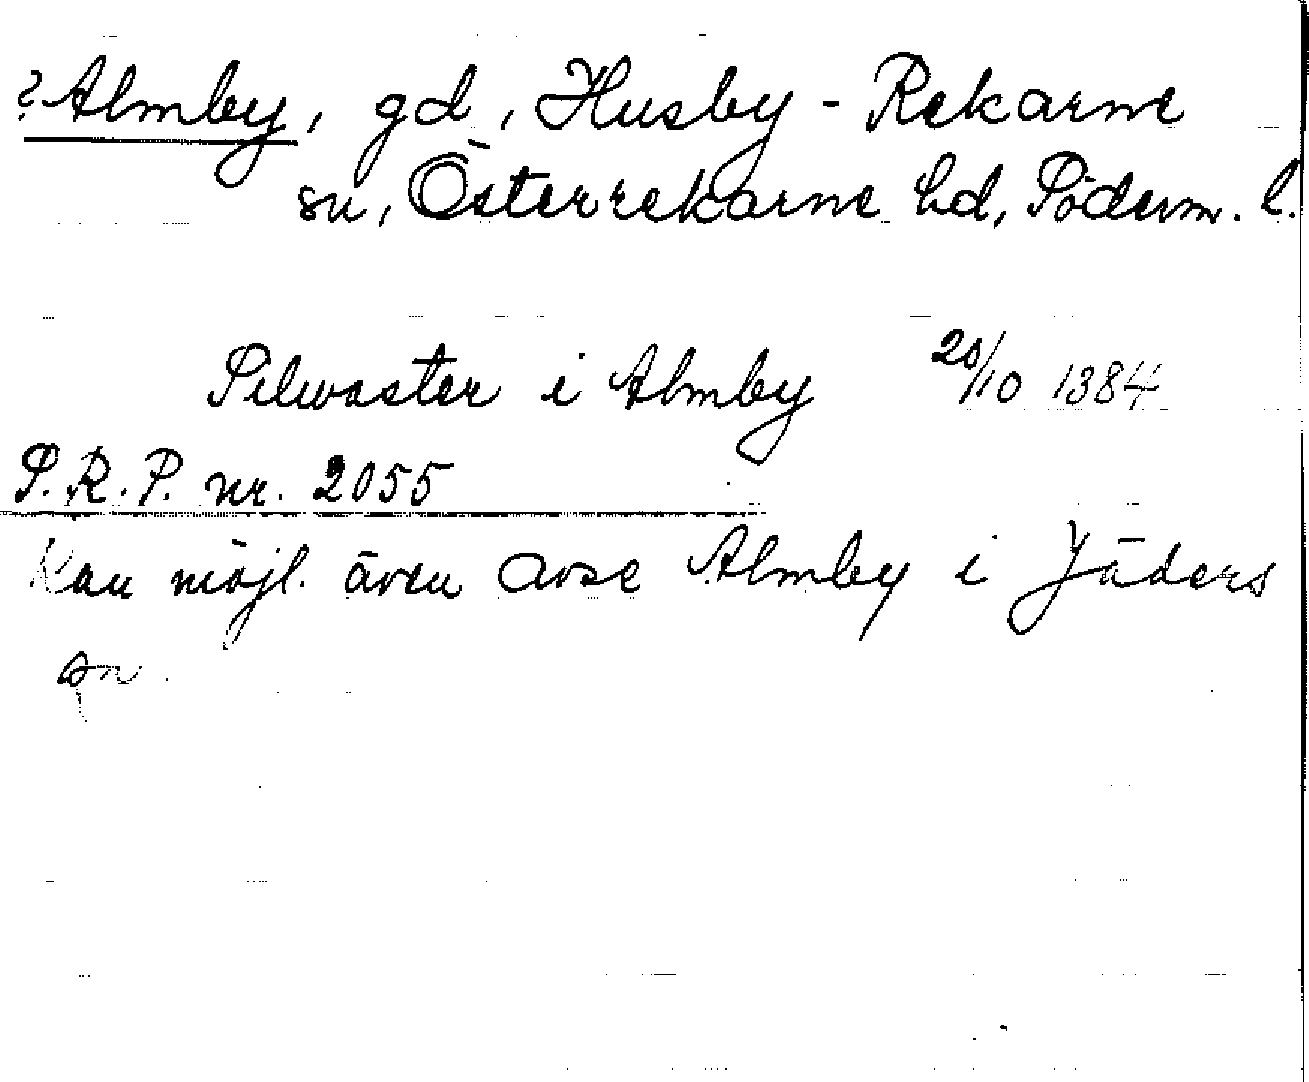 ? Almby, gd, Husby-Rekarne
sn, Österrekarne hd, Söderm. l.
Silwaster i Almby 20/10 1384
S.R.P. nr. 2055
Kan möjl. även avse Almby i Jäders
sn.